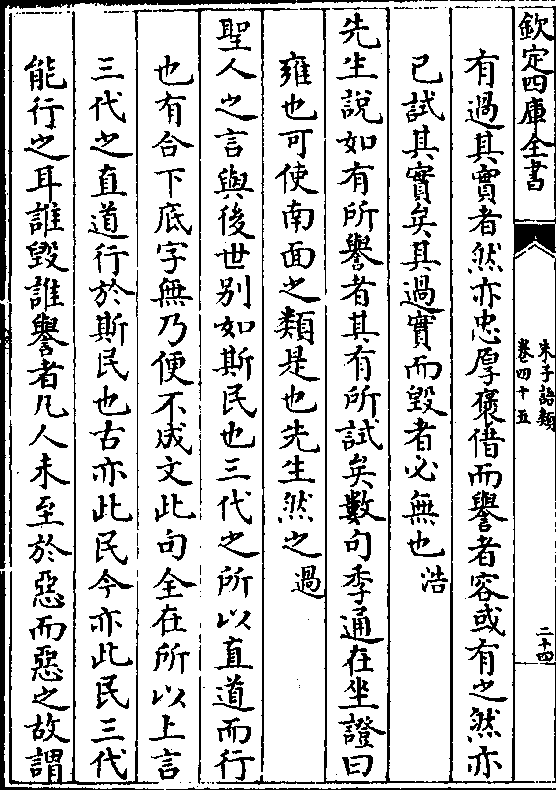 欽定四庫全書
朱子語類
卷四十五
二十四
有過其實者然亦忠厚褒借而譽者容或有之然亦
已試其實矣其過實而毀者必無也浩
先生說如有所譽者其有所試矣數句季通在坐證曰
雍也可使南面之類是也先生然之過
聖人之言與後世别如斯民也三代之所以直道而行
也有合下底字無乃便不成文此句全在所以上言
三代之直道行於斯民也古亦此民今亦此民三代
能行之耳誰毀誰譽者凡人未至於惡而惡之故謂